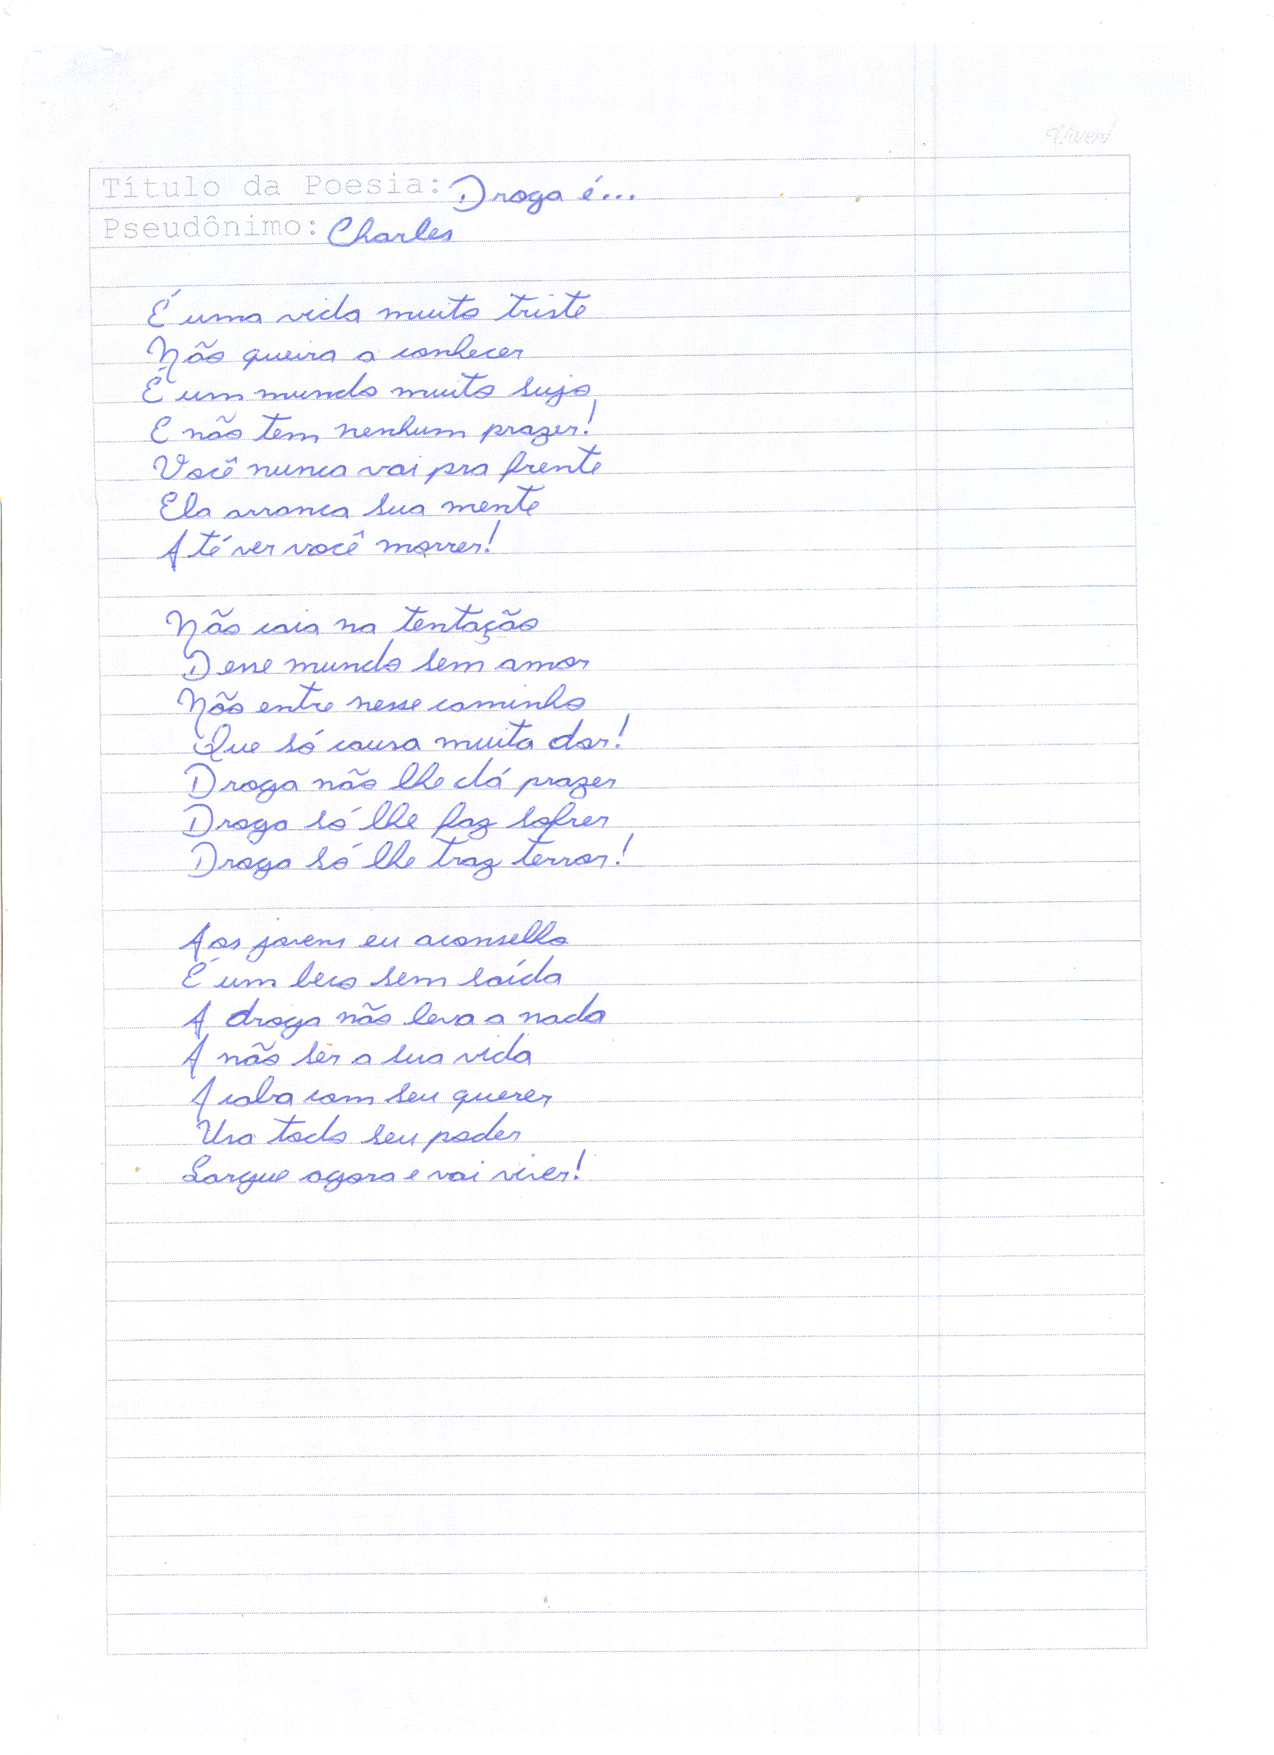 Título da Poesia: Droga é...
Pseudônimo: Charles
É uma vida muito triste
Não queira a conhecer
É um mundo muito sujo
E não tem nenhum prazer!
Você nunca vai pra frente
Ela arranca sua mente
Até ver você morrer!
Não caia na tentação
Desse mundo sem amor
Não entre nesse caminho
Que só causa muita dor!
Droga não lhe dá prazer
Droga só lhe faz sofrer
Droga só lhe traz terror!
Aos jovens eu aconselho
É um beco sem saída
A droga não leva a nada
A não ser a sua vida
Acaba com seu querer
Usa todo seu poder
Largue agora e vai viver!